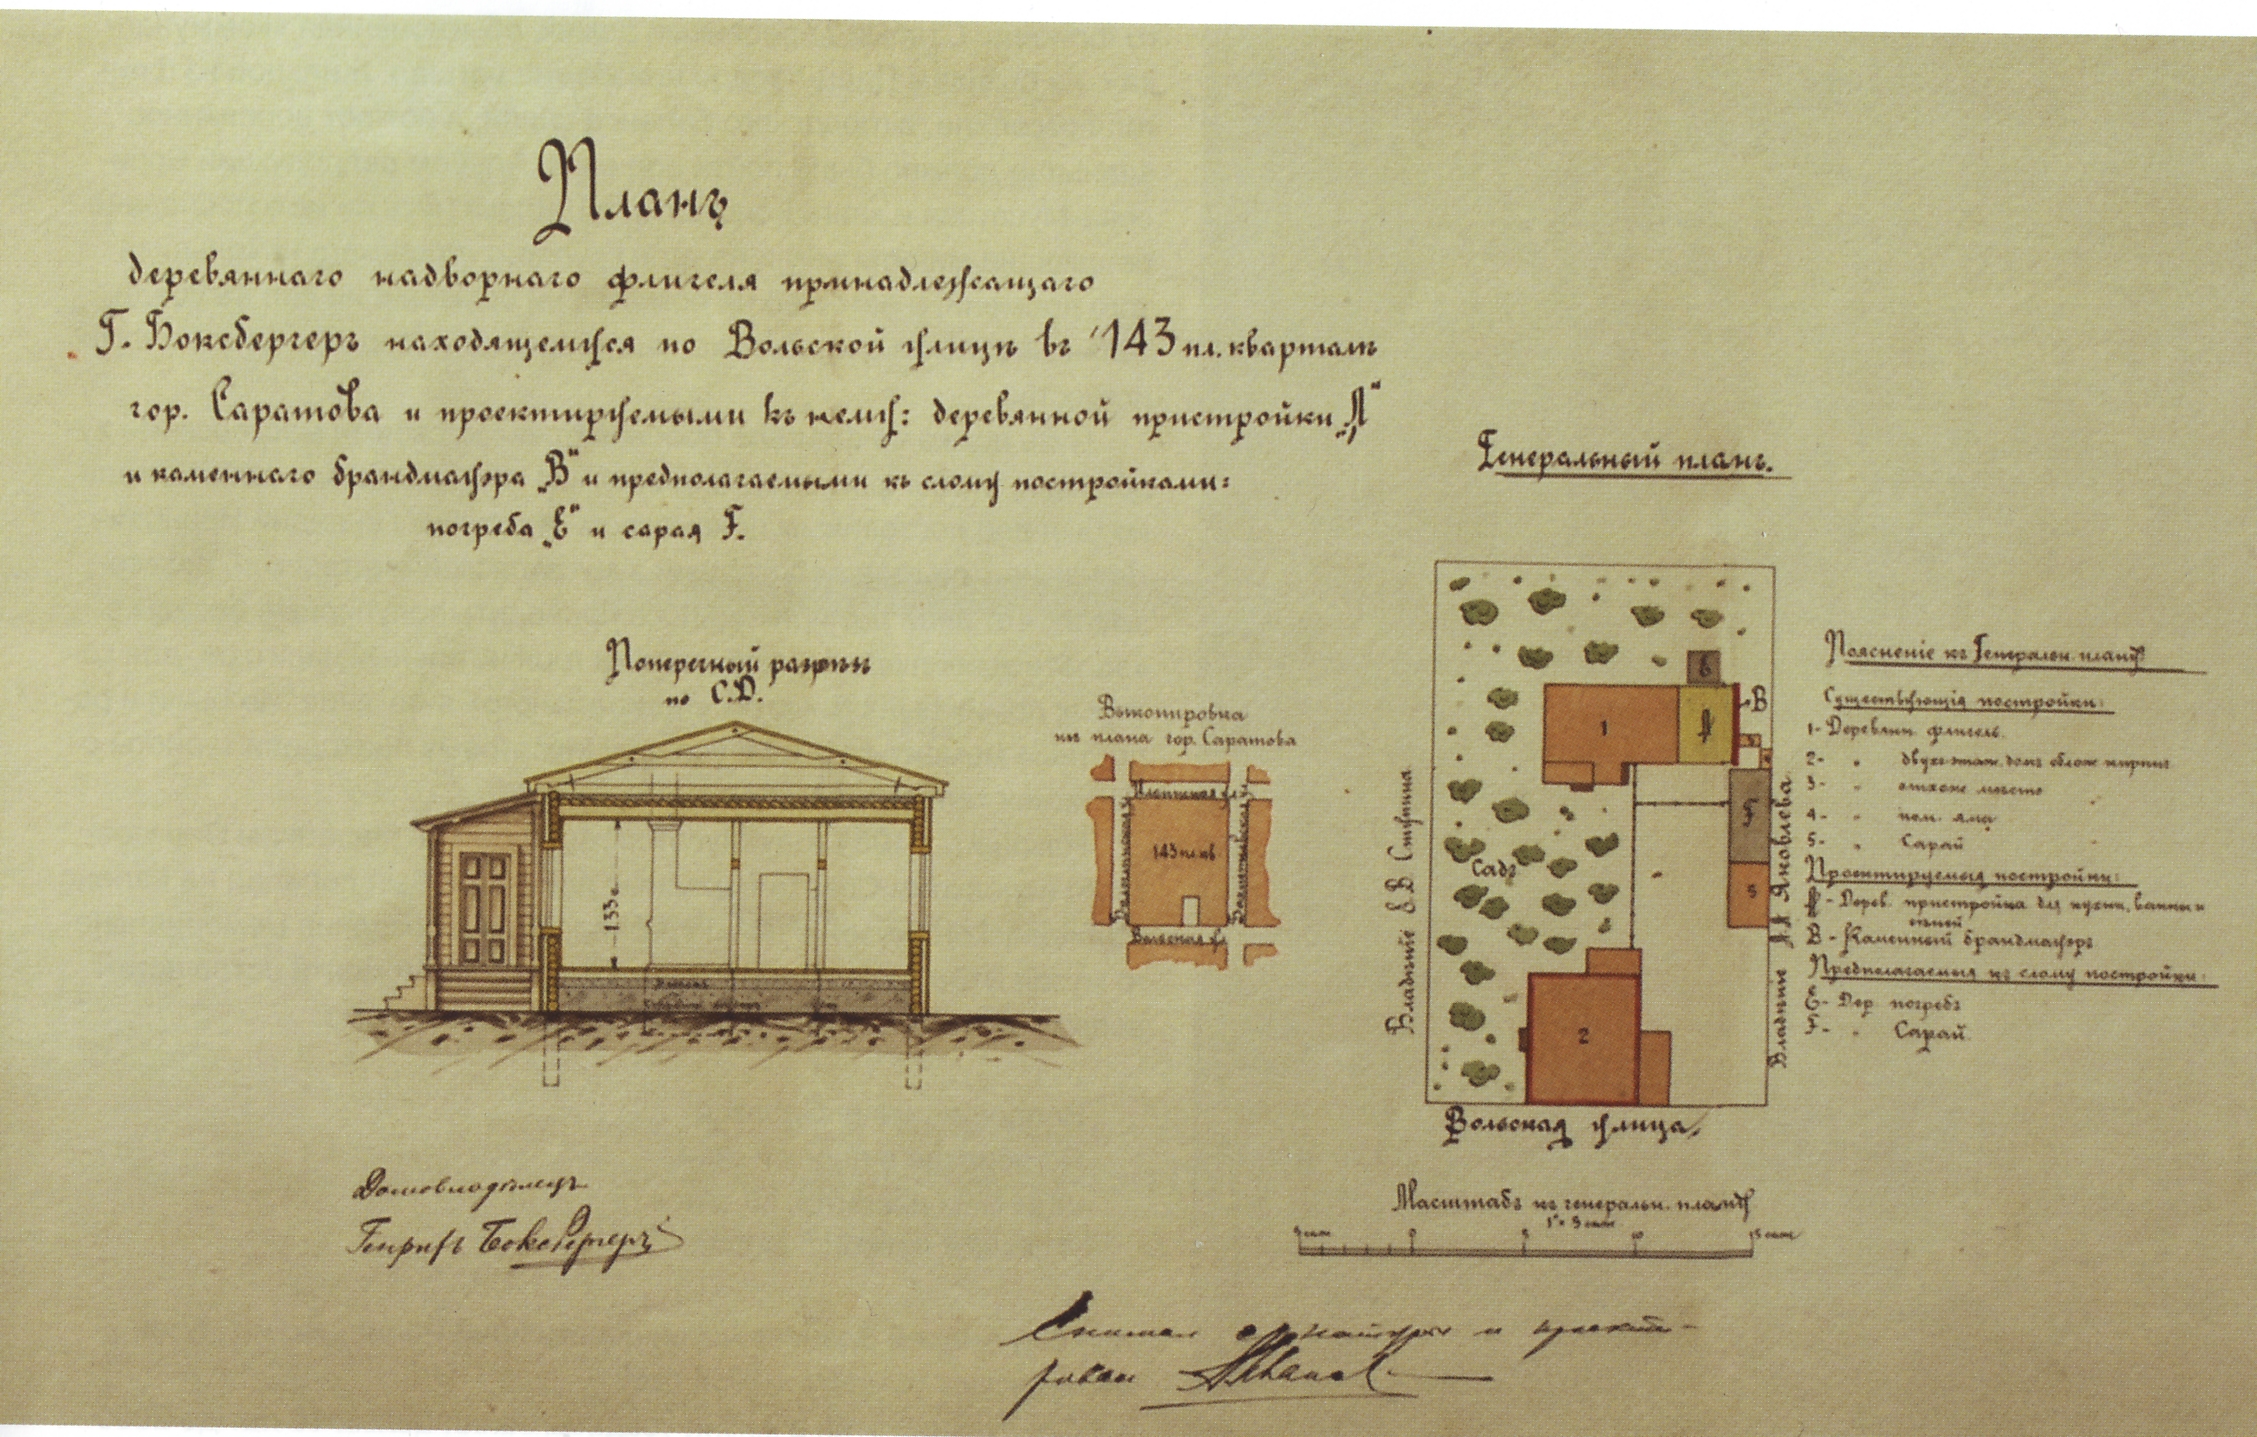 Планъ
деревяннаго надворнаго флигеля принадлежащаго
Г. Боксбергеръ находящемуся по Вольской улицѣ въ 143 пл. кварталѣ
гор. Саратова и проектируемыми къ нему: деревянной пристройки „А“
и каменнаго брандмауэра „В“ и предполагаемыми къ слому постройками:
погреба „Е“ и сарая F.
Генеральный планъ.
Поперечный разрѣзъ
по С.D.
1.33 с
Выкопировка
изъ плана гор. Саратова
143 пл. кв.
Вольская ул
Владѣніе В.В. Ступина
Садъ
1
А
В
6
F
5
2
Владѣніе А.А. Яковлева
Вольская улица
Поясненіе къ Генеральн. плану
Существующія постройки:
1- Деревян. флигель.
2- " двухъ-этаж. домъ облож. кирпич
3- " отхоже мѣсто
4- " пом. яма
5- " Сарай
Проектируемыя постройки:
А - Дерев. пристройка для кухни, ванны и
сѣней
В - Каменный брандмауэръ
Предполагаемыя къ слому постройки:
Е- Дер. погребъ
F- " Сарай
Масштабъ къ генеральн. плану
1" = 5 саж
5 саж 0 5 10 15 саж
Домовладѣлецъ
Генрихъ Боксбергеръ
Снималъ съ натуры и проекти-
ровалъ